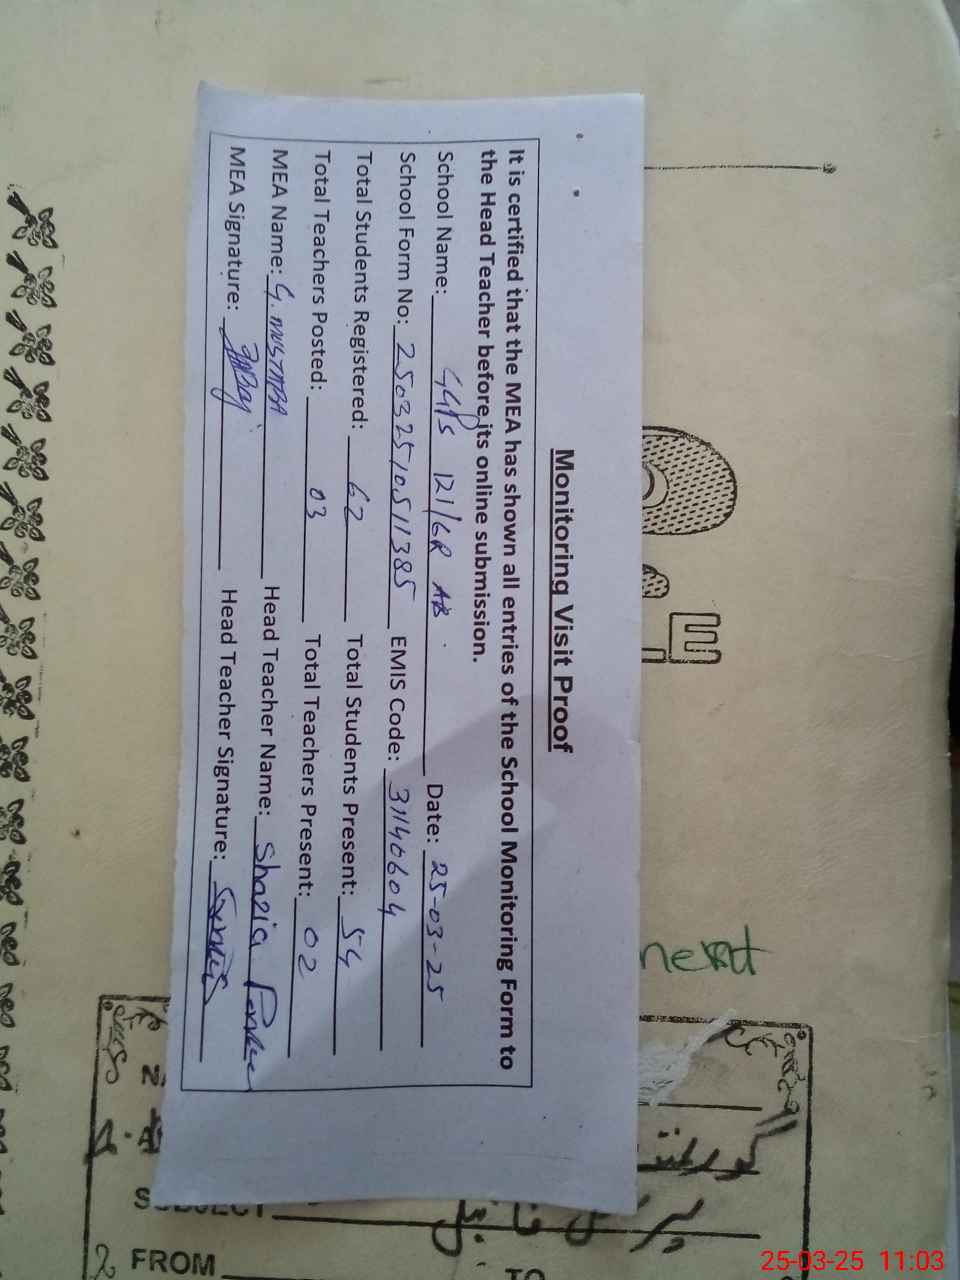 Monitoring Visit Proof
It is certified that the MEA has shown all entries of the School Monitoring Form to
the Head Teacher before its online submission.
School Name: GGPS 121/6R AB. Date: 25-03-25
School Form No: 25032510511385 EMIS Code: 31140604
Total Students Registered: 62 Total Students Present: 54
Total Teachers Posted: 03 Total Teachers Present: 02
MEA Name: G. MUSTAFA Head Teacher Name: Shazia
MEA Signature: Head Teacher Signature:
E
SUBJECT
FROM
TO
25-03-25 11:03